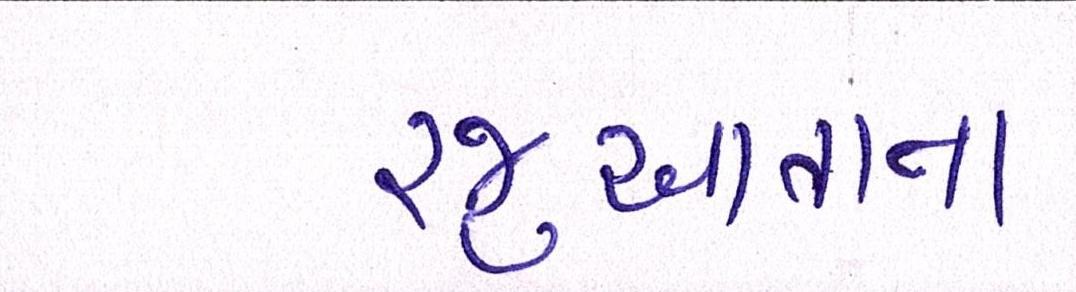 રજુઆતાના